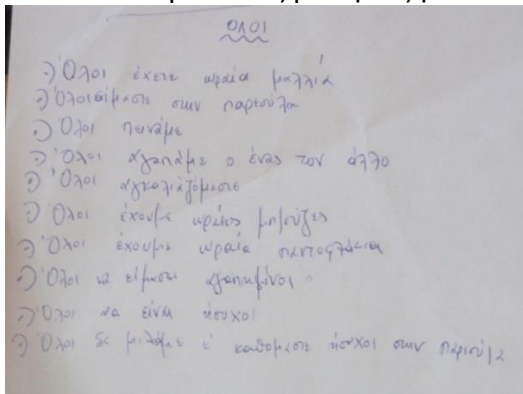 ΟΛΟΙ
Όλοι έχετε ωραία μαλλιά
Όλοι είμαστε στην παρεούλα
Όλοι πεινάμε
Όλοι αγαπάμε ο ένας τον άλλο
Όλοι αγκαλιαζόμαστε
Όλοι έχουμε ωραίες μπλούζες
Όλοι έχουμε ωραία παντοφλάκια
Όλοι να είμαστε αγαπημένοι
Όλοι να είναι ήσυχοι
Όλοι δε μιλάμε ε καθόμαστε ήσυχοι στην παρεούλα